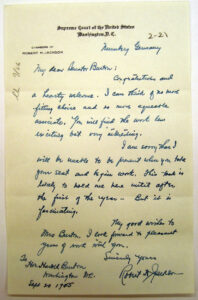 Supreme Court of the United States
Washington, D.C.
CHAMBERS OF
ROBERT H. JACKSON
2-21
Nurnberg Germany
My dear Senator Burton:
Congratulations and
a hearty welcome. I can think of no more
fitting choice and no more agreeable
associate. You will find the work less
exciting but very interesting.
I am sorry that I
will be unable to be present when you take
your seat and begin work. This task is
likely to hold me here until after
the first of the year – But it is
fascinating.
My good wishes to
Mrs Burton. I look forward to pleasant
years of work with you.
Sincerely yours
Robert H Jackson
To Hon Harold Burton
Washington DC.
Sept 20 1945